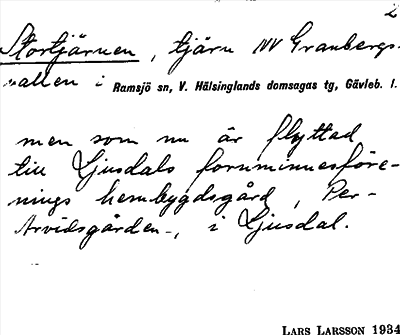 2
Stortjärnen, tjärn NV Granbergs-
vallen i Ramsjö sn, V. Hälsinglands domsagas tg, Gävleb. l.
men som nu är flyttad
till Ljusdals fornminnesföre-
nings hembygdsgård, Per-
Arvidsgården, i Ljusdal.
LARS LARSSON 1934